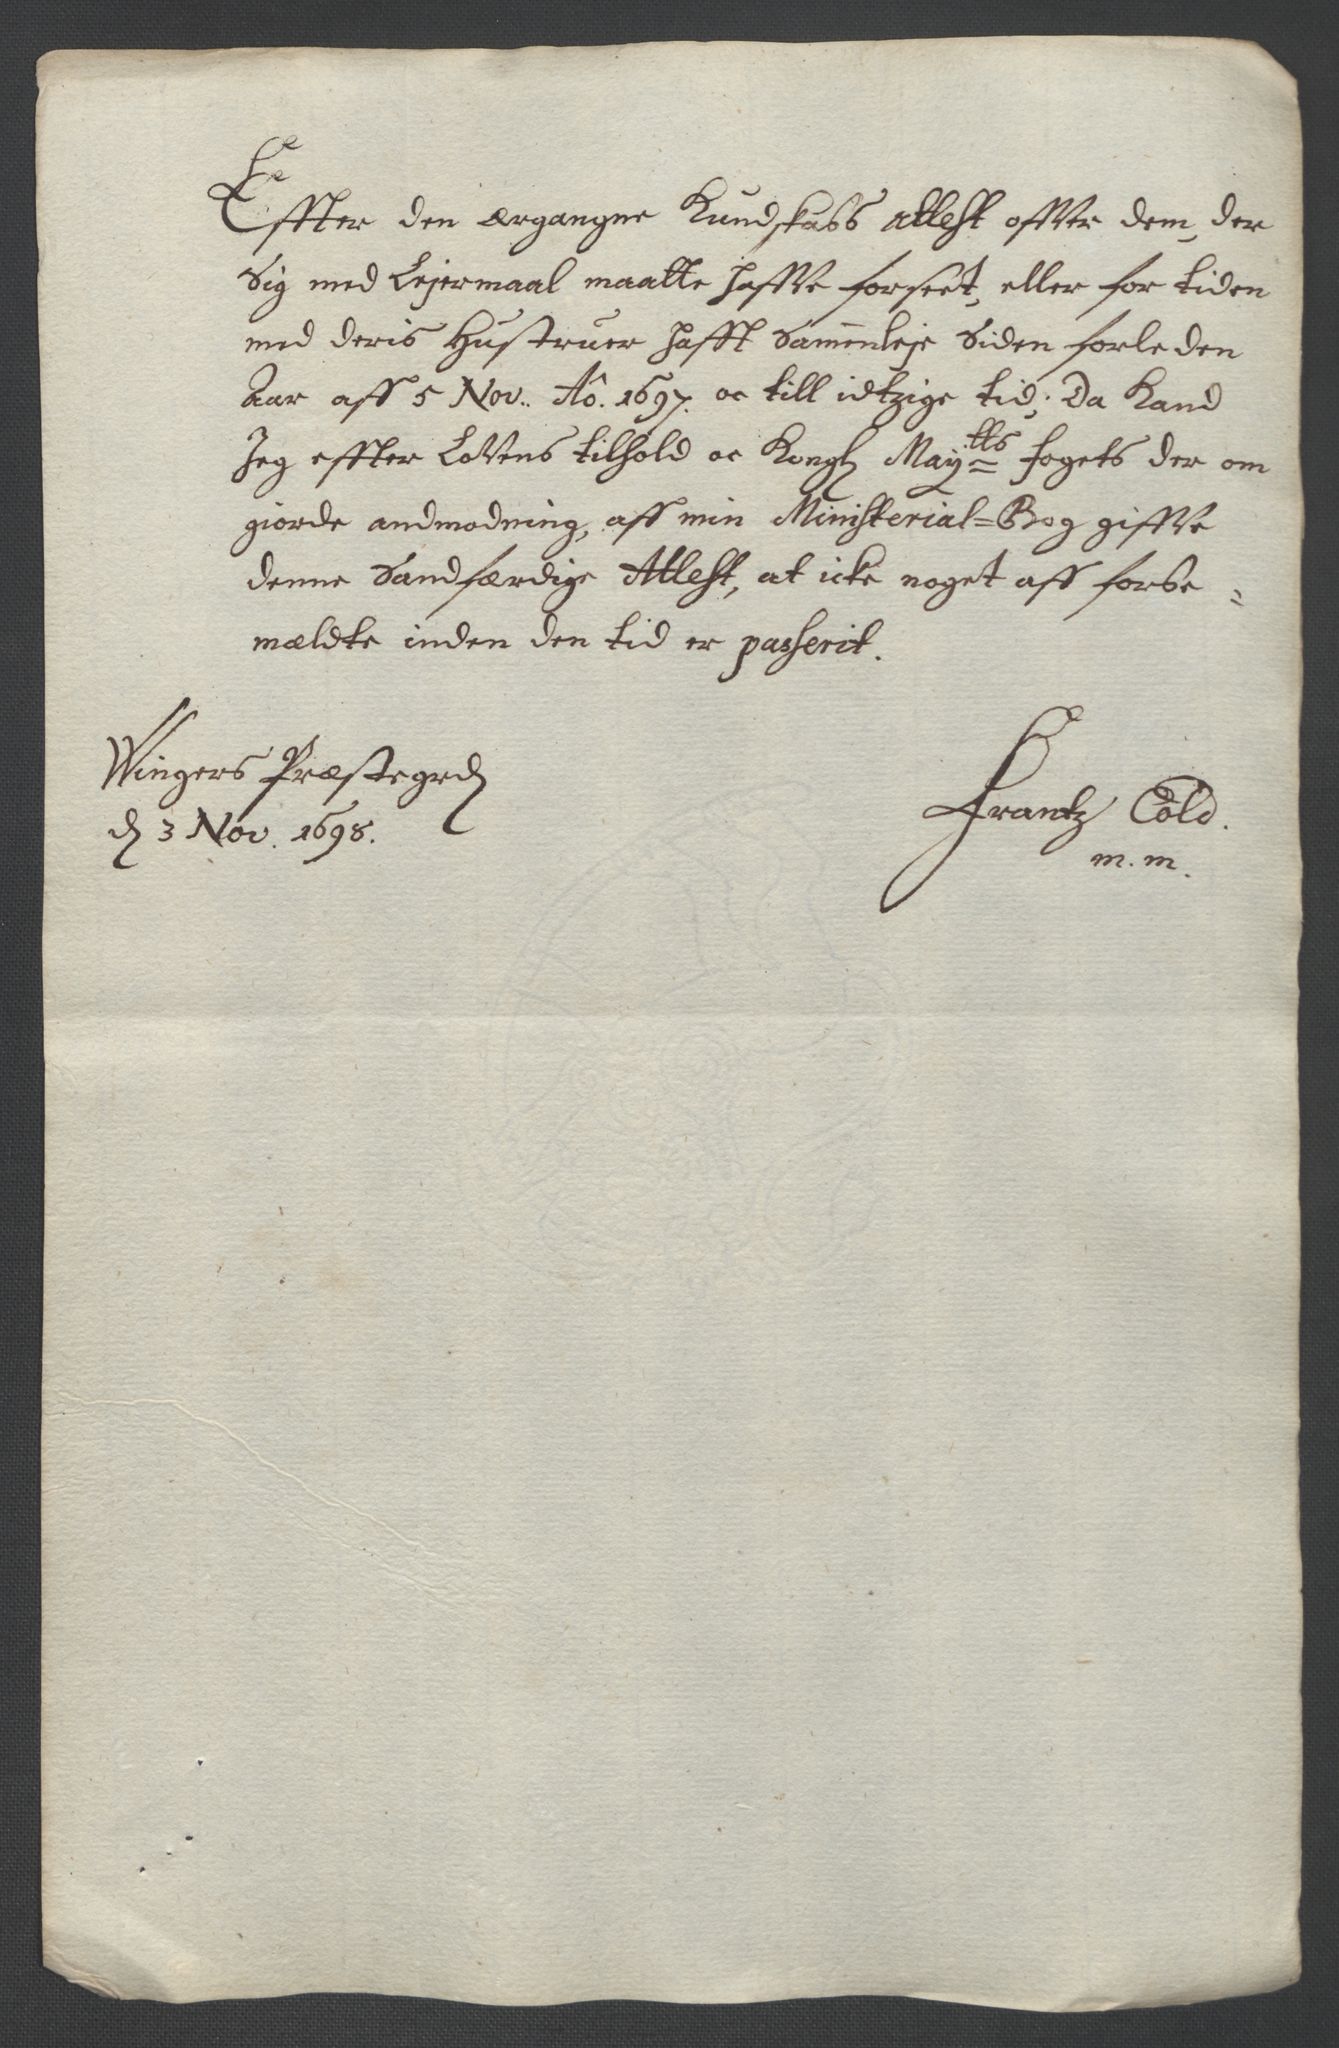 Effter den ærgangne Kundskabs attest offver dem, der
Sig med Lejermaal maatte haffve forseet, eller for tiden
med deris Hustruer hafft Sammenleje Siden forleden
Aar aff 5 Nov. Aô. 1697. oc till idtzige tid; Da Kand
Jeg effter Lovens tilhold oc Kongl Maytts fogets der om
giorde andmodning, aff min Ministerial=Bog giffve
denne Sandfærdige Attest, at icke noget aff forbe=
mældte inden den tid er passerit.
Wingers Præstegrd
d 3 Nov. 1698.
Frantz Cold.
m.m.